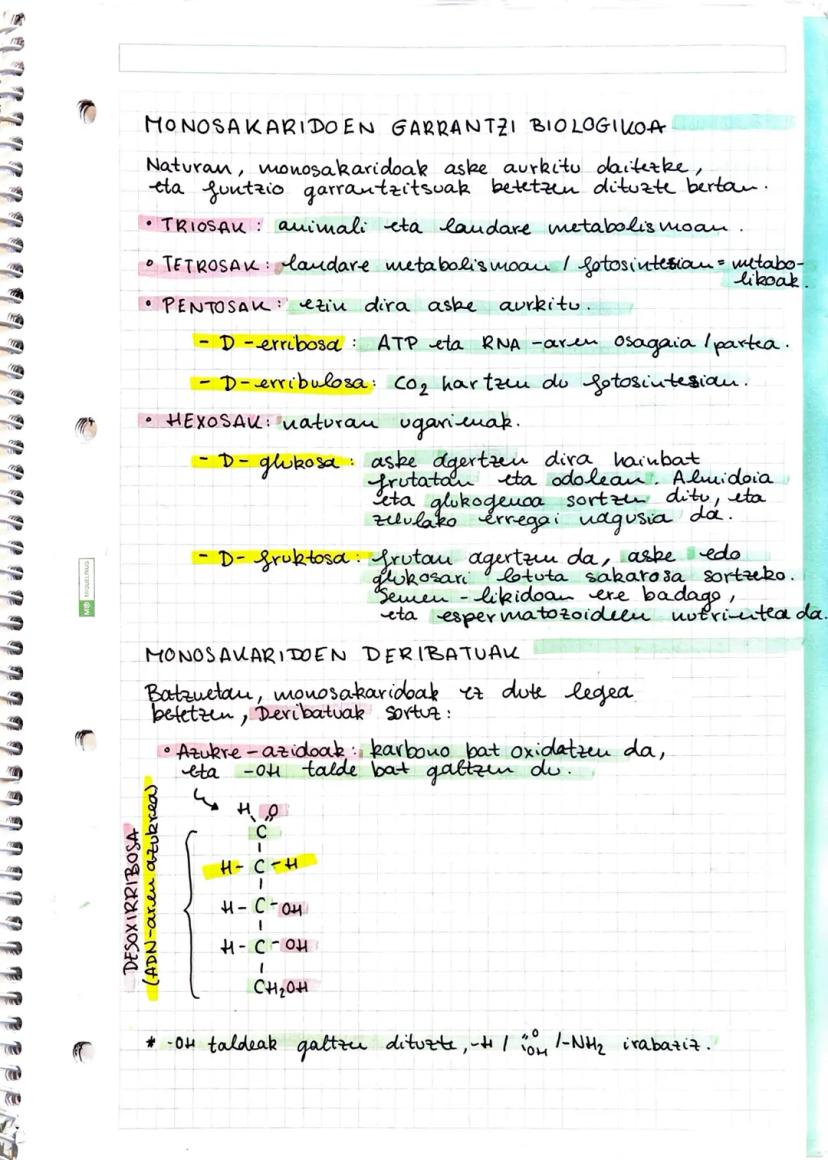 MONOSAKARIDOEN GARRANTZI BIOLOGIKOA
Naturan, monosakaridoak aske aurkitu daitezke,
eta funtzio garrantzitsuak betetzen dituzte bertan.
• TRIOSAK: animali eta landare metabolismoan.
• TETROSAK: landare metabolismoan / fotosintesian = metabo-
likoak.
• PENTOSAK: ezin dira aske aurkitu.
- D-erribosa: ATP eta RNA-aren osagaia / partea.
- D-erribulosa: CO₂ hartzen du fotosintesian.
• HEXOSAK: naturan ugarienak.
- D-glukosa: aske agertzen dira hainbat
frutatan eta odolean. Almidoia
eta glukogenoa sortzen ditu, eta
zelulako erregai nagusia da.
- D-fruktosa: frutan agertzen da, aske edo
glukosari lotuta sakarosa sortzeko.
Semen-likidoan ere badago,
eta espermatozoideen nutrientea da.
MONOSAKARIDOEN DERIBATUAK
Batzuetan, monosakaridoak ez dute legea
betetzen, Deribatuak sortuz:
• Azukre-azidoak: karbono bat oxidatzen da,
eta -OH talde bat galtzen du.
DESOXIRRIBOSA
(ADN-aren azukrea)
H O
C
H-C-H
H-C-OH
H-C-OH
CH₂OH
* -OH taldeak galtzen dituzte, -H / =O -OH / -NH₂ irabaziz.
MIQUELRIUS